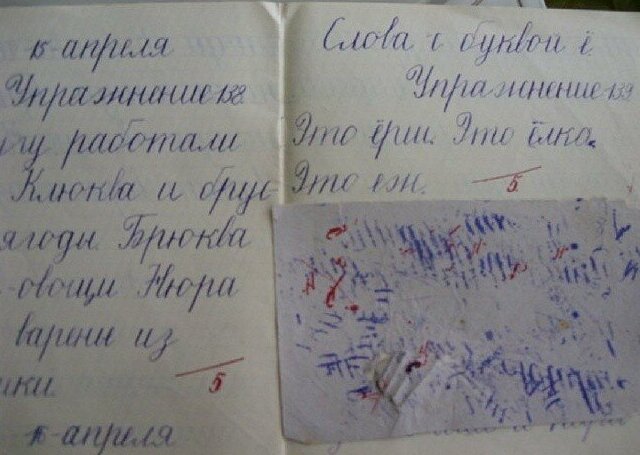 15-апреля
Упражнение 138.
работали
Клюква и брус-
ягоды Брюква
-овощи Нюра
варени из
5
апреля
Слова с буквой ё.
Упражнение 139
Это ёрш. Это ёлка.
Это еж.
5